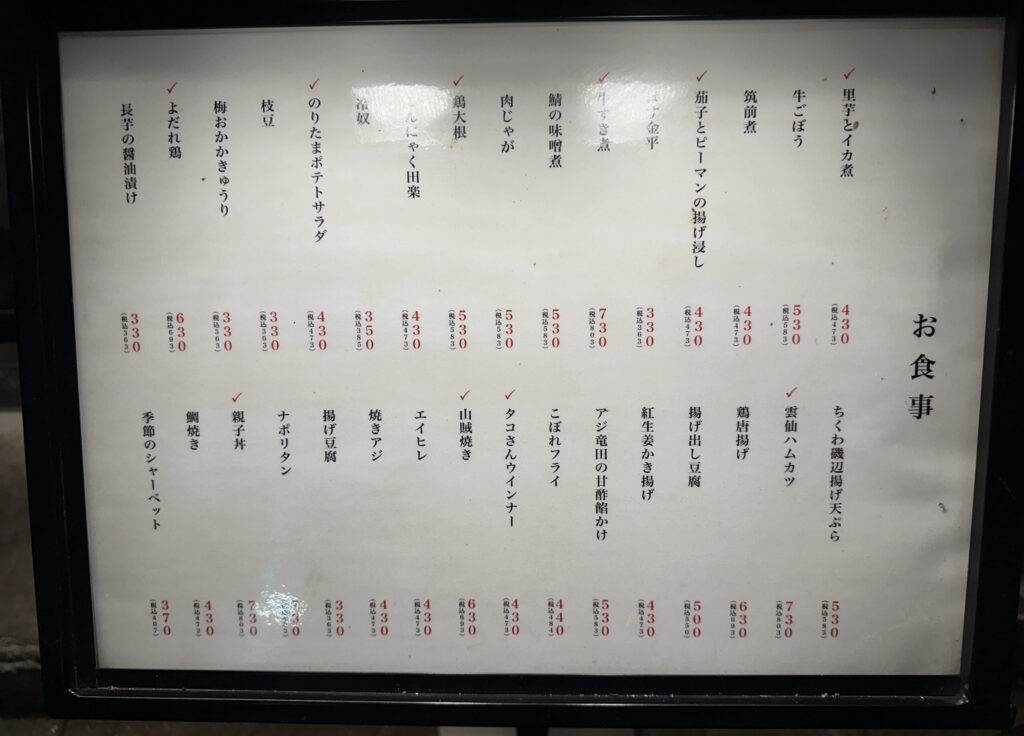 お食事
✓里芋とイカ煮 430 (税込473)
牛ごぼう 530 (税込583)
筑前煮 430 (税込473)
✓茄子とピーマンの揚げ浸し 430 (税込473)
金平 330 (税込363)
✓牛すき煮 730 (税込803)
鯖の味噌煮 530 (税込583)
肉じゃが 530 (税込583)
✓鶏大根 530 (税込583)
こんにゃく田楽 430 (税込473)
冷奴 350 (税込385)
✓のりたまポテトサラダ 430 (税込473)
枝豆 330 (税込363)
梅おかかきゅうり 330 (税込363)
✓よだれ鶏 630 (税込693)
長芋の醤油漬け 330 (税込363)
ちくわ磯辺揚げ天ぷら 530 (税込583)
✓雲仙ハムカツ 730 (税込803)
鶏唐揚げ 630 (税込693)
揚げ出し豆腐 500 (税込550)
紅生姜かき揚げ 430 (税込473)
アジ竜田の甘酢餡かけ 530 (税込583)
こぼれフライ 440 (税込484)
✓タコさんウインナー 430 (税込473)
✓山賊焼き 630 (税込693)
エイヒレ 430 (税込473)
焼きアジ 430 (税込473)
揚げ豆腐 330 (税込363)
ナポリタン
✓親子丼 730 (税込803)
鯛焼き 430 (税込473)
季節のシャーベット 370 (税込407)